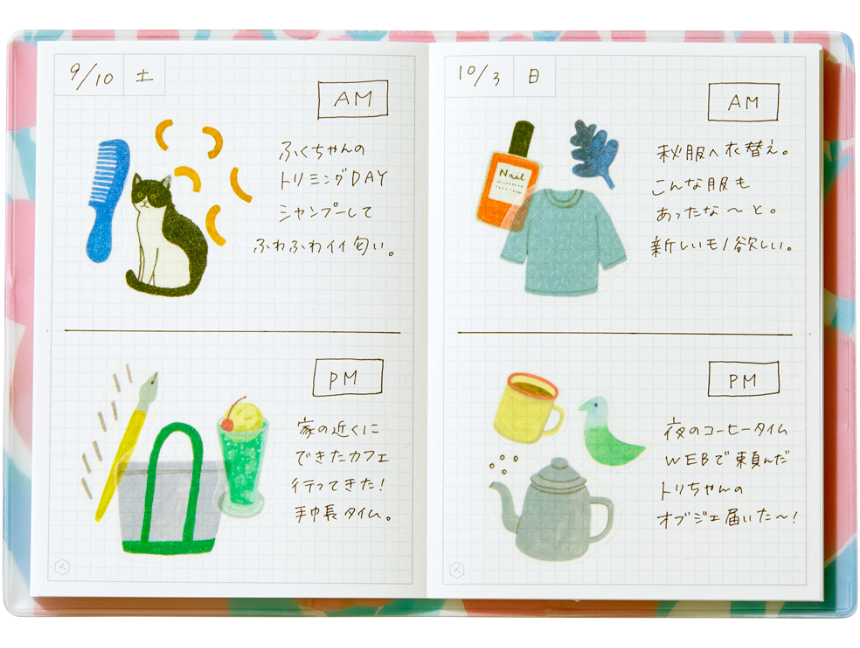 9/10 土
AM
ふくちゃんの
トリミングDAY
シャンプーして
ふわふわイイ匂い。
PM
家の近くに
できたカフェ
行ってきた!
手帳タイム。
10/3 日
AM
Nail
秋服へ衣替え。
こんな服も
あったな〜と。
新しいモノ欲しい。
PM
夜のコーヒータイム
WEBで頼んだ
トリちゃんの
オブジェ届いた〜!